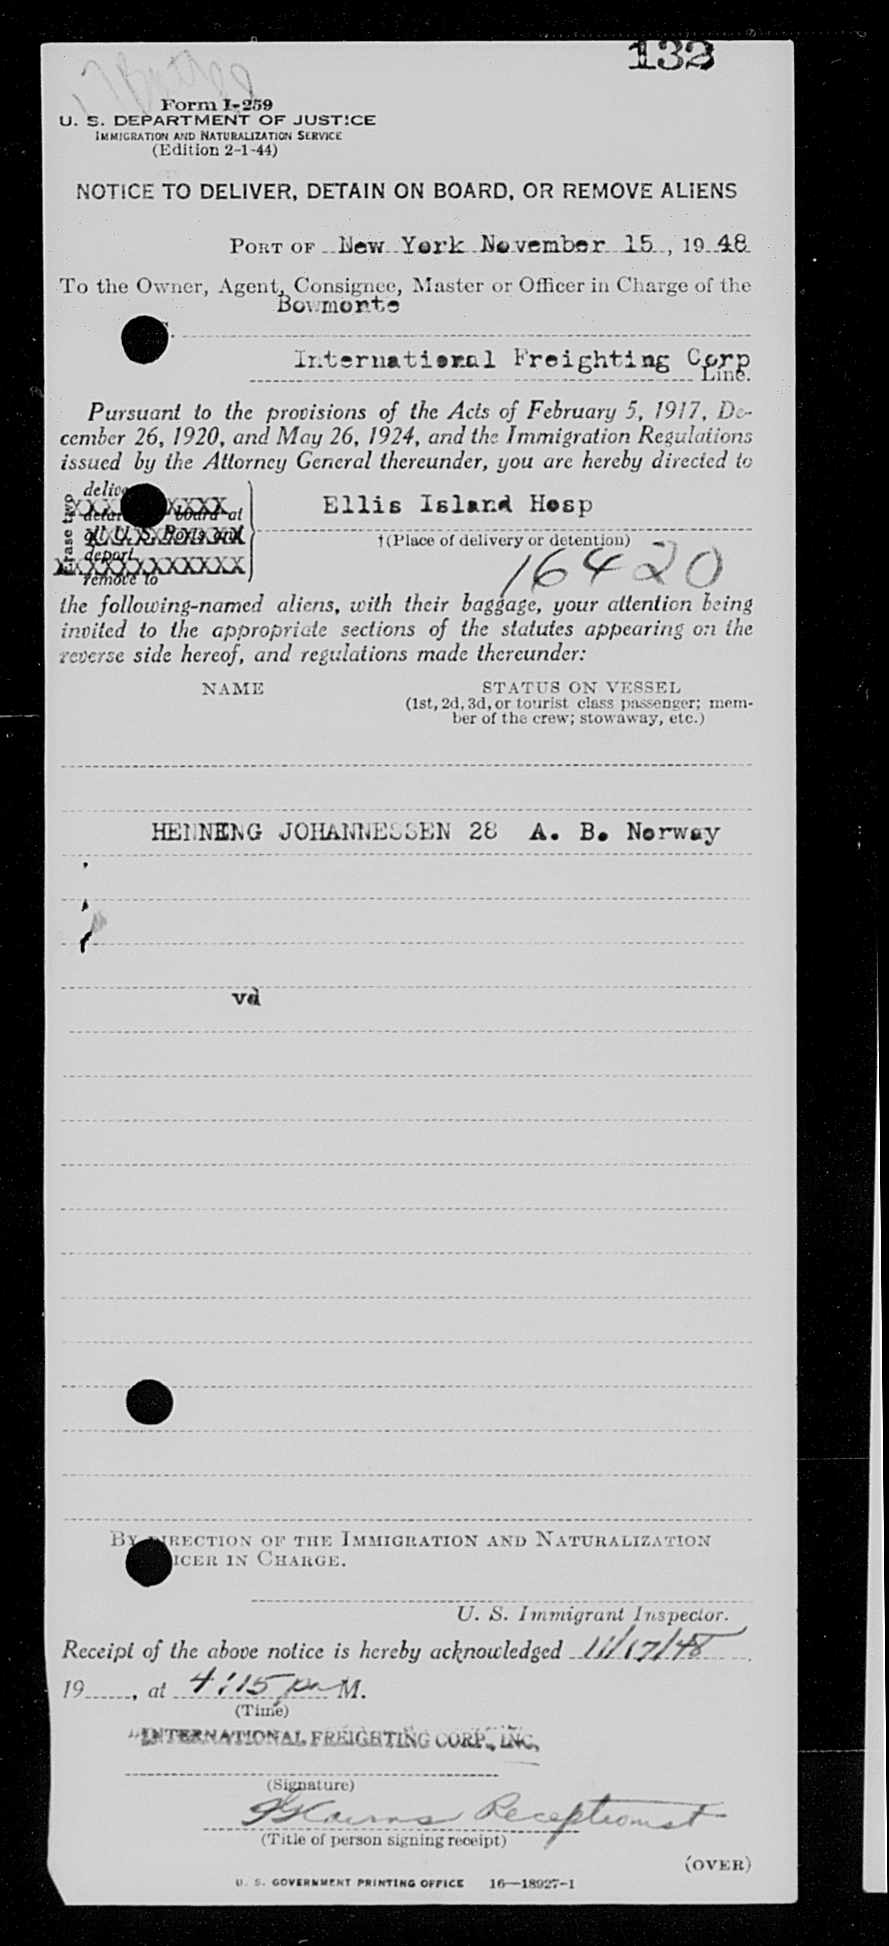 132
Form I-259
U. S. DEPARTMENT OF JUSTICE
IMMIGRATION AND NATURALIZATION SERVICE
(Edition 2-1-44)
NOTICE TO DELIVER, DETAIN ON BOARD, OR REMOVE ALIENS
PORT OF New York November 15, 1948
To the Owner, Agent, Consignee, Master or Officer in Charge of the
Bowmonte
International Freighting Corp
Line.
Pursuant to the provisions of the Acts of February 5, 1917, De-
cember 26, 1920, and May 26, 1924, and the Immigration Regulations
issued by the Attorney General thereunder, you are hereby directed to
Erase two
board at
all U. S. Ports and
deport
remove to
Ellis Island Hosp
†(Place of delivery or detention)
16420
the following-named aliens, with their baggage, your attention being
invited to the appropriate sections of the statutes appearing on the
reverse side hereof, and regulations made thereunder:
NAME STATUS ON VESSEL
(1st, 2d, 3d, or tourist class passenger; mem-
ber of the crew; stowaway, etc.)
HENNENG JOHANNESSEN 28 A. B. Norway
vd
BY DIRECTION OF THE IMMIGRATION AND NATURALIZATION
ICER IN CHARGE.
U. S. Immigrant Inspector.
Receipt of the above notice is hereby acknowledged 11/17/48
19____, at 4:15 pm M.
(Time)
INTERNATIONAL FREIGHTING CORP., INC.
(Signature)
Receptionist
(Title of person signing receipt)
(OVER)
U. S. GOVERNMENT PRINTING OFFICE 16—18927-1